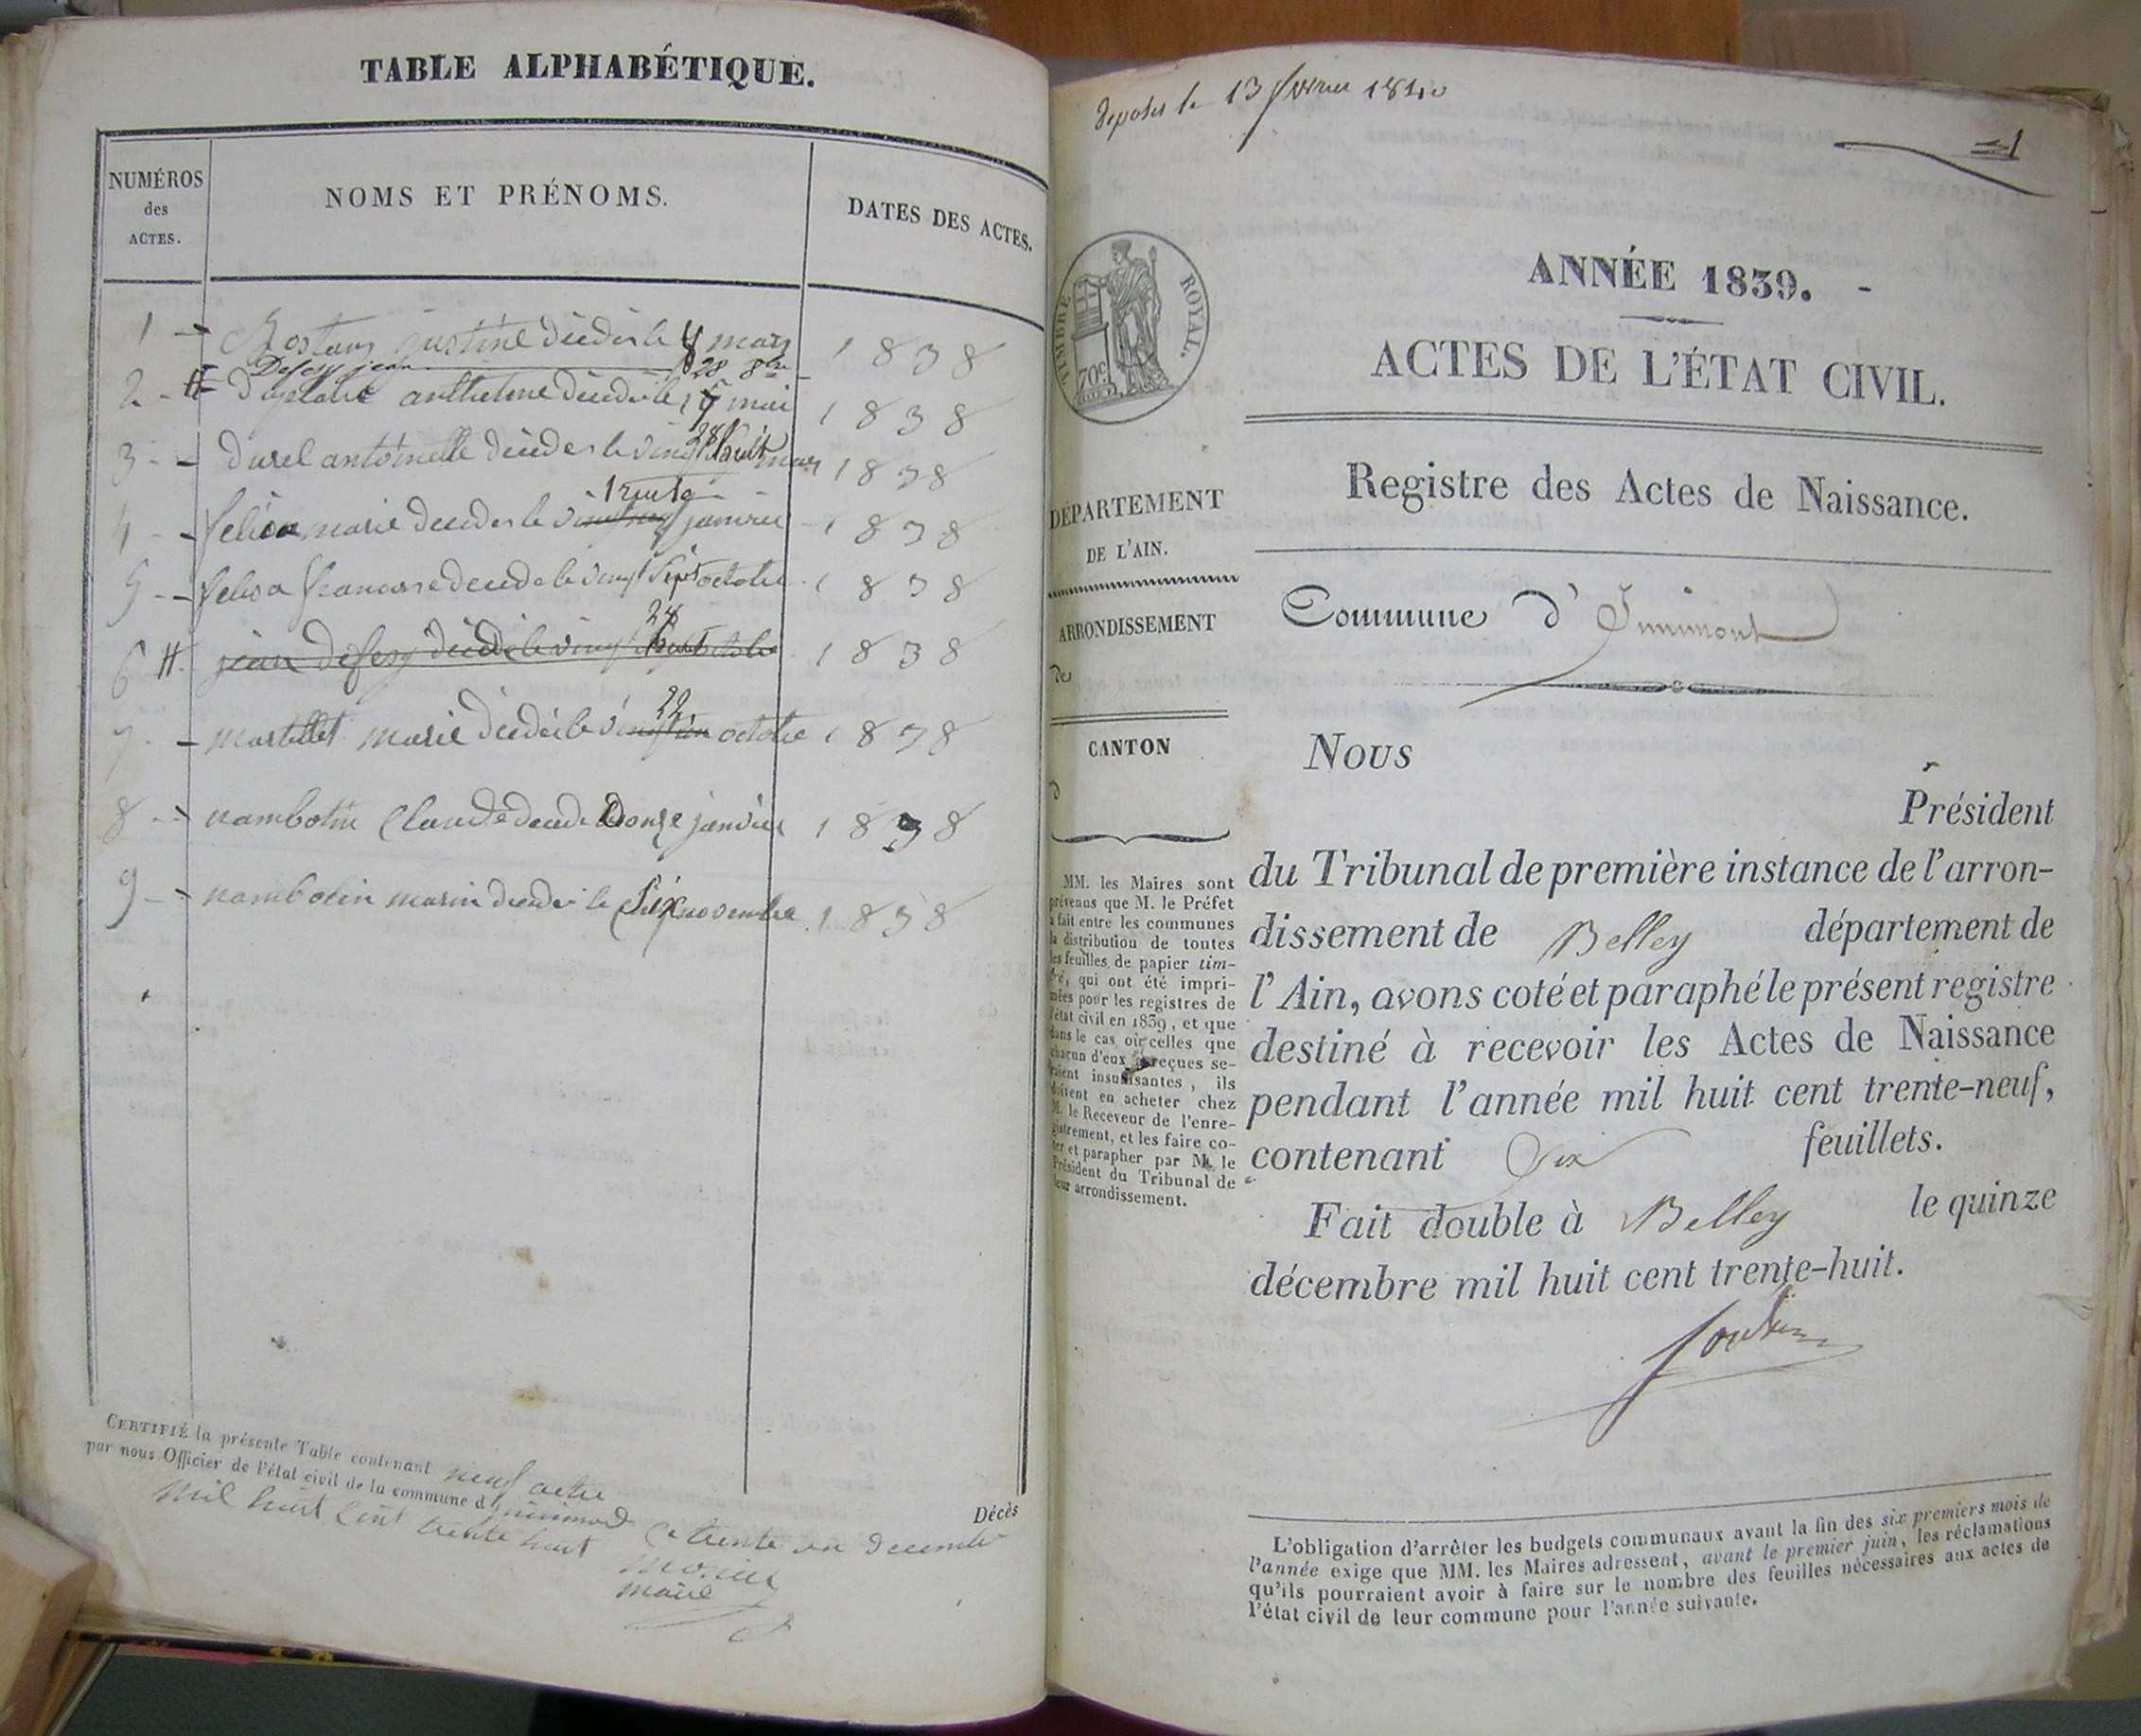 TABLE ALPHABÉTIQUE.
NUMÉROS
des
ACTES.
NOMS ET PRÉNOMS.
DATES DES ACTES.
1 justine décédée le 4 mars 1838
Defesy jean 28 8bre
2 décédé le 17 mai 1838
3 durel antoinelle décédée le vingt huit mars 1838
28
1 trente
4 felisa marie décédée le janvier 1838
5 felisa décédé le vingt sept octobre 1838
28
6 jean defesy décédé le vingt octobre 1838
22
7 martellet marie décédée le vingt un octobre 1838
8 nambotin Claude décédé le onze janvier 1838
9 nambotin marin décédé le Six novembre 1838
CERTIFIÉ la présente Table contenant neuf actes
par nous Officier de l'état civil de la commune d
ce trente un decembre
mil huit cent trente huit
maire
Décès
deposés le 13 fevrier 1840
1
TIMBRE ROYAL.
70c
ANNÉE 1839.
ACTES DE L'ÉTAT CIVIL.
Registre des Actes de Naissance.
DÉPARTEMENT
DE L'AIN.
ARRONDISSEMENT
de
CANTON
d
MM. les Maires sont
prévenus que M. le Préfet
a fait entre les communes
la distribution de toutes
les feuilles de papier tim-
bré, qui ont été impri-
mées pour les registres de
l'état civil en 1839, et que
dans le cas où celles que
chacun d'eux a reçues se-
raient insuffisantes, ils
doivent en acheter chez
M. le Receveur de l'enre-
gistrement, et les faire co-
ter et parapher par M. le
Président du Tribunal de
leur arrondissement.
Commune d' Innimont
Nous
Président
du Tribunal de première instance de l'arron-
dissement de Belley département de
l'Ain, avons coté et paraphé le présent registre
destiné à recevoir les Actes de Naissance
pendant l'année mil huit cent trente-neuf,
contenant Six feuillets.
Fait double à Belley le quinze
décembre mil huit cent trente-huit.
L'obligation d'arrêter les budgets communaux avant la fin des six premiers mois de
l'année exige que MM. les Maires adressent, avant le premier juin, les réclamations
qu'ils pourraient avoir à faire sur le nombre des feuilles nécessaires aux actes de
l'état civil de leur commune pour l'année suivante.